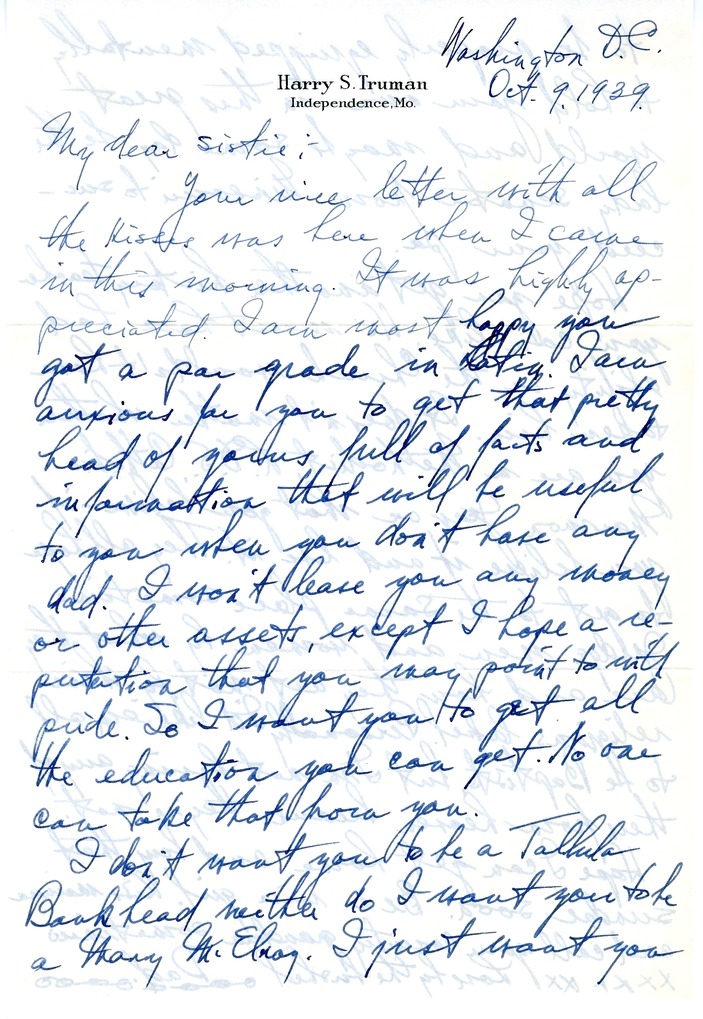 Washington D.C.
Harry S. Truman
Independence, Mo.
Oct. 9, 1939.
My dear sistie:-
Your nice letter with all
the kisses was here when I came
in this morning. It was highly ap-
preciated. I am most happy you
got a par grade in Latin. I am
anxious for you to get that pretty
head of yours full of facts and
information that will be useful
to you when you don't have any
dad. I won't leave you any money
or other assets, except I hope a re-
putation that you may point to with
pride. So I want you to get all
the education you can get. No one
can take that from you.
I don't want you to be a Tallula
Bankhead neither do I want you to be
a Mary McElroy. I just want you